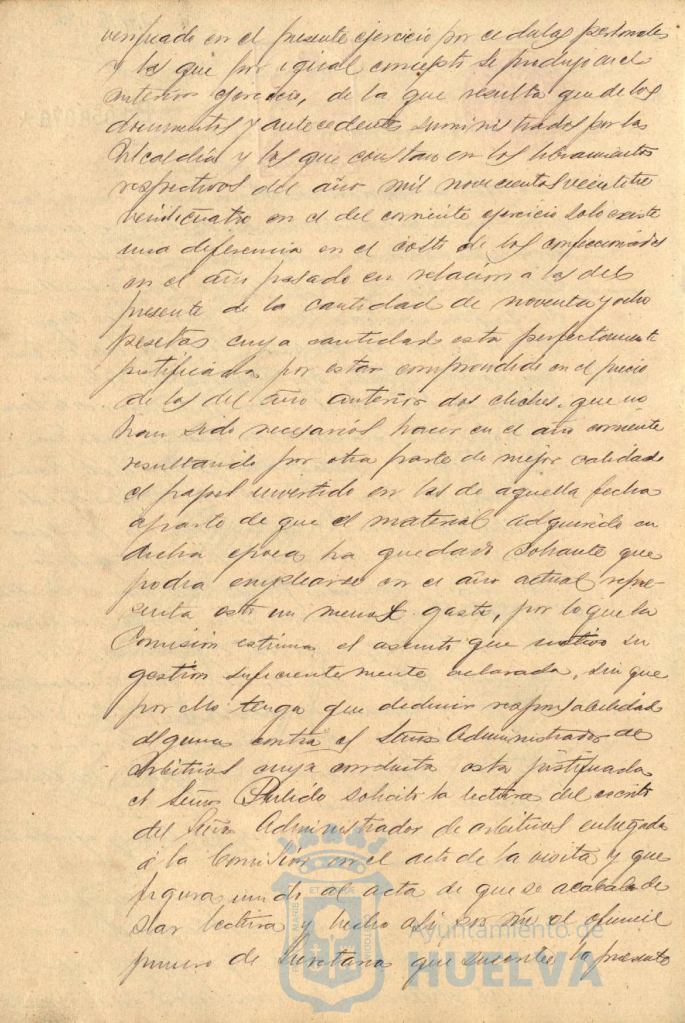 verificado en el presente ejercicio por cedulas personales
y los que por igual concepto se produjo en el
anterior ejercicio, de la que resulta que de los
documentos y antecedentes suministrados por la
Alcaldía y los que constan en los libramientos
respectivos del año mil novecientos veintitres
veinticuatro en el del corriente ejercicio solo existe
una diferencia en el coste de los confeccionados
en el año pasado en relación a los del
presente de la cantidad de noventa y ocho
pesetas cuya cantidad esta perfectamente
justificada por estar comprendido en el precio
de los del año anterior dos cliches, que no
han sido necesarios hacer en el año corriente
resultando por otra parte de mejor calidad
el papel invertido en los de aquella fecha
aparte de que el material adquirido en
dicha epoca ha quedado sobrante que
podra emplearse en el año actual repre-
senta esto un menor gasto, por lo que la
Comisión estima el asunto que motivo su
gestion suficientemente aclarada, sin que
por ello tenga que deducir responsabilidad
alguna contra el Señor Administrador de
arbitrios cuya conducta esta justificada
el Señor Pulido solicito la lectura del escrito
del Señor Administrador de arbitrios entregado
á la Comisión en el acto de la visita y que
figura unido al acta de que se acababa de
dar lectura y hecho asi por mi el oficial
primero de Secretaria que suscribe la presente
Ayuntamiento de
HUELVA